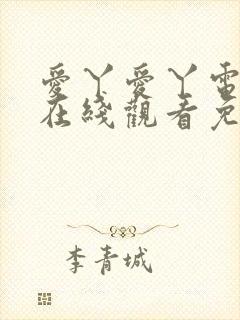 愛丫愛丫電
在綫觀看免
李青城